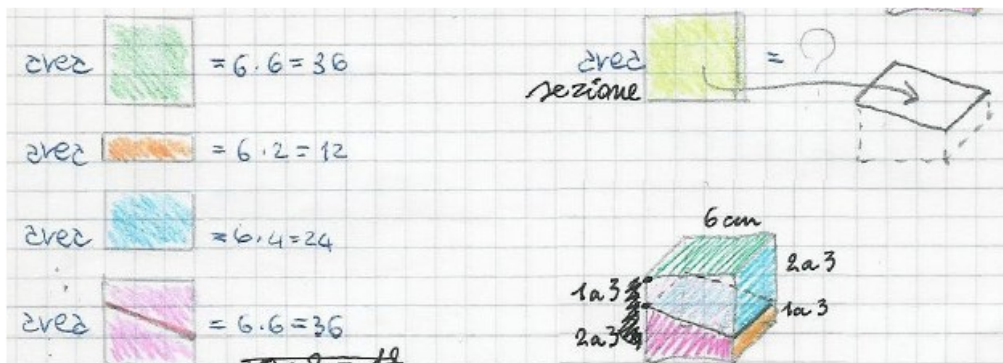 area = 6 . 6 = 36
area = 6 . 2 = 12
area = 6 . 4 = 24
area = 6 . 6 = 36
area = ?
sezione
6 cm
2 a 3
1 a 3
1 a 3
2 a 3